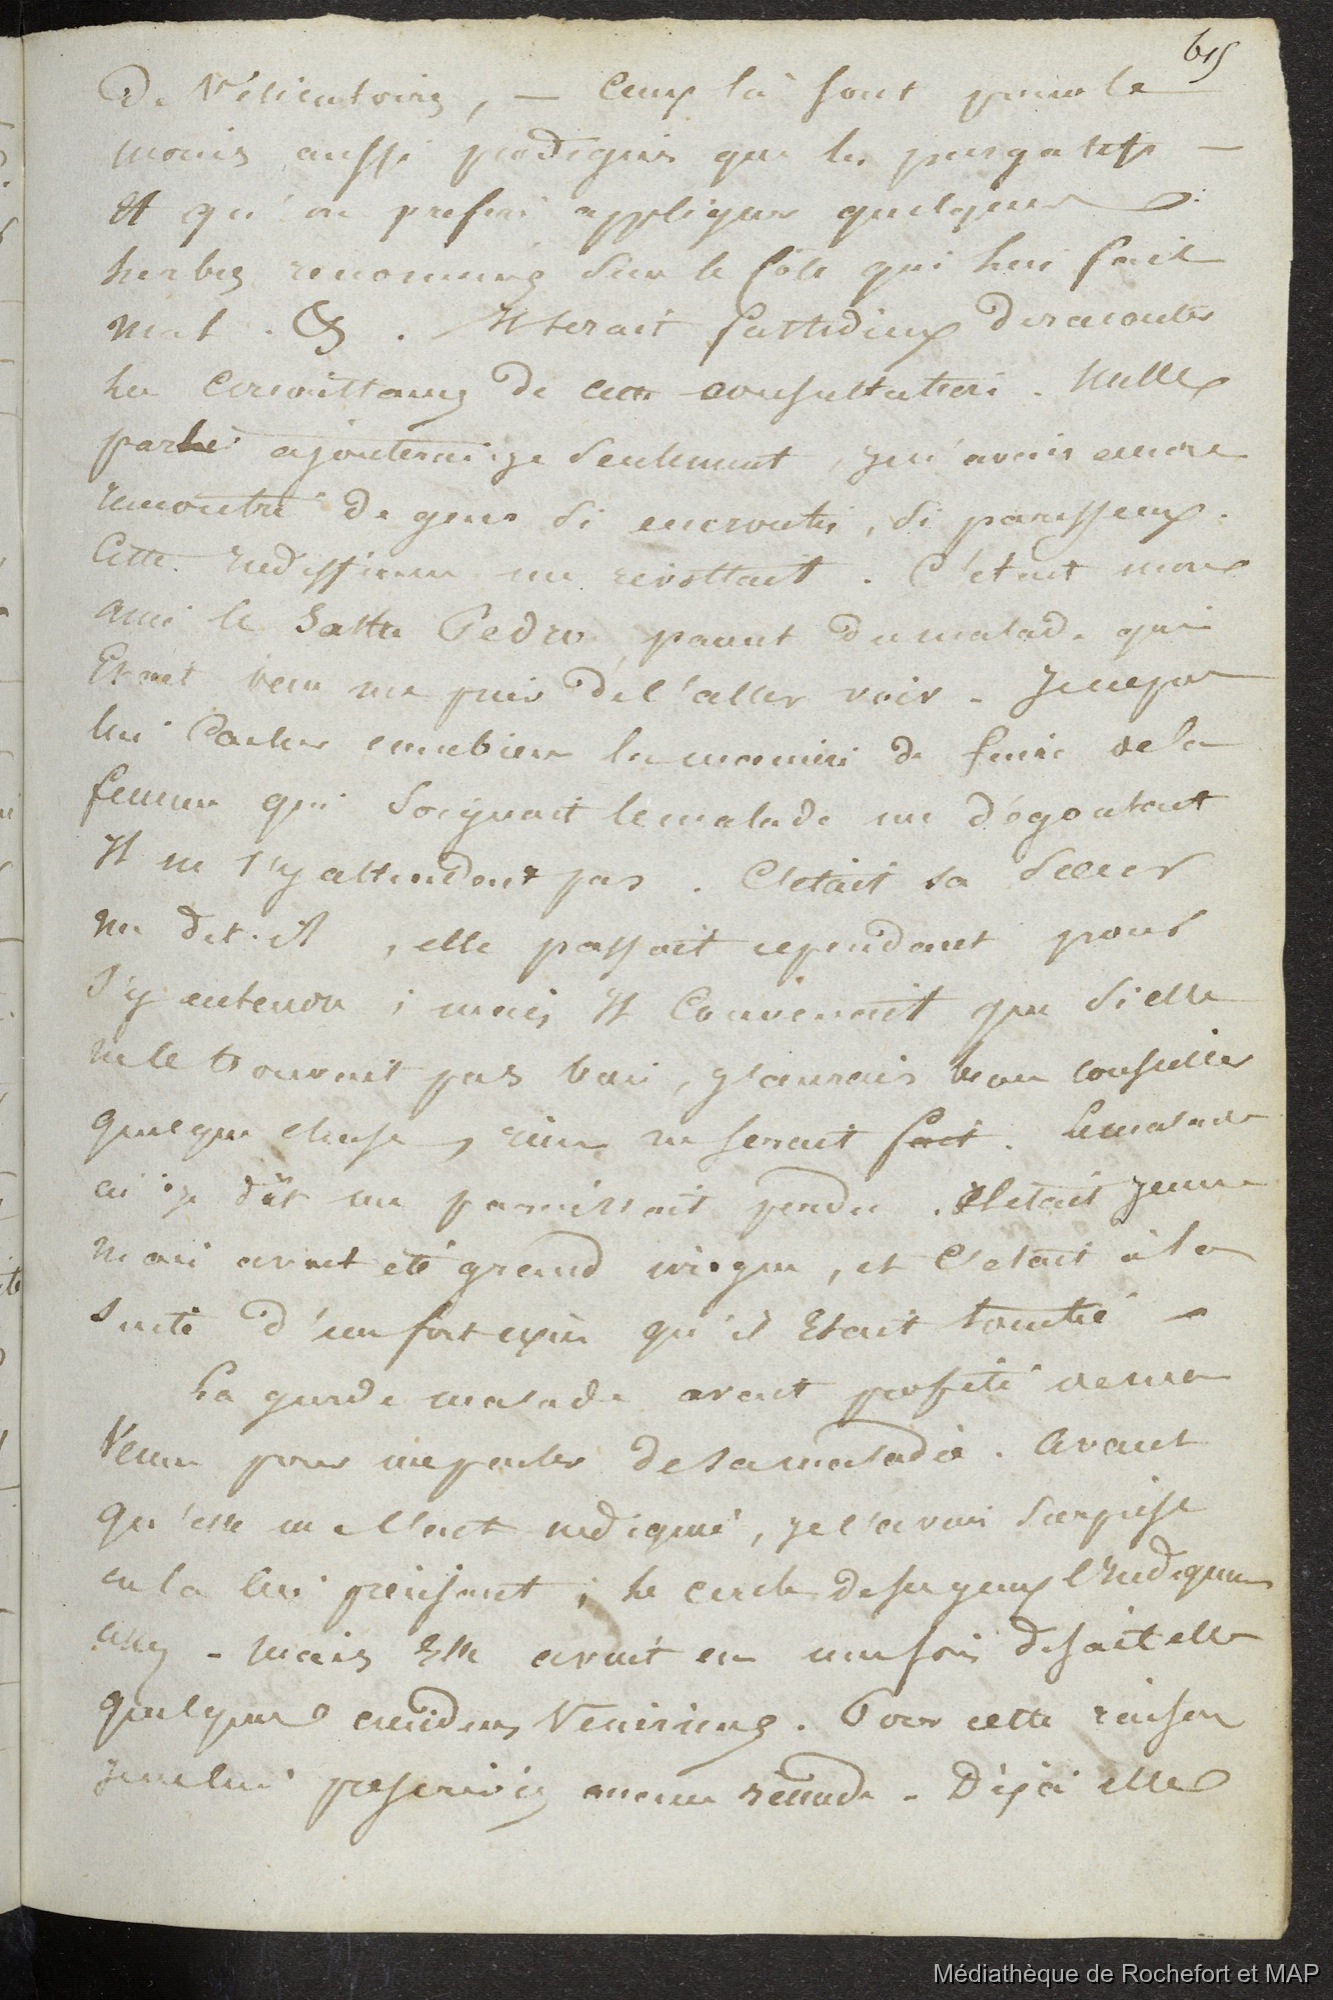 65
De Vésicatoires, — Ceux là sont pour le
moins aussi prodigués que les purgatifs —
Et qu'on préféré appliquer quelques
herbes renommées sur le côté qui lui fait
mal. &. Il serait fastidieux de raconter
les circonstances de cette consultation. Nulle
part ajouterai-je seulement, je n'avais encore
rencontré de gens si encroutés, si paresseux.
Cette indifférence me révoltait. C'etait mon
ami le Pedro, parent du malade qui
Etait venu me prier de l'aller voir. Je ne pus
lui cacher combien la manière de faire de la
femme qui soignait le malade me dégoutait
Il ne s'y attendait pas. C'etait sa Sœur
me dit-il, elle passait cependant pour
s'y entendre ; mais Il Convenait que si elle
ne le trouvait pas bon, j'aurais beau conseiller
quelque chose, rien ne serait fait. Le malade
ai-je dit me paraissait perdu. Il etait jeune
mais avait eté grand ivrogne, et C'etait à la
suite d'un fort excès qu'il Etait tombé —
La garde malade avait profité de ma
Venue pour me parler de sa maladie. Avant
qu'elle me l'eut indiqué, je l'avais surprise
en la lui ; le cercle de ses yeux l'Indiquait
assez. Mais Elle avait eu une fois disait elle
quelques accidens Vénériens. Pour cette raison
je ne lui prescrivis aucun remède. Déjà elle
Médiathèque de Rochefort et MAP